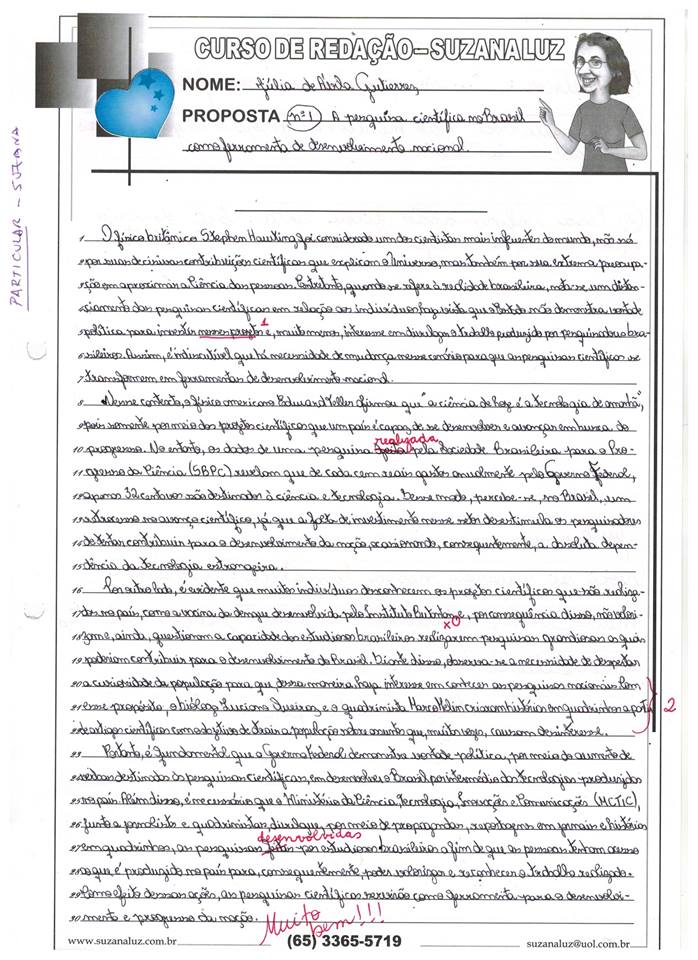 CURSO DE REDAÇÃO – SUZANA LUZ
NOME: Júlia de Ávila Gutierrez
PROPOSTA nº1 A pesquisa científica no Brasil
como ferramenta de desenvolvimento nacional.
PARTICULAR – SUZANA
1 O físico britânico Stephen Hawking foi considerado um dos cientistas mais influentes do mundo, não só
2 por suas decisivas contribuições científicas que explicam o Universo, mas também por sua extrema preocupa-
3 ção em aproximar a Ciência das pessoas. Entretanto, quando se refere à realidade brasileira, nota-se um distan-
4 ciamento das pesquisas científicas em relação aos indivíduos haja vista que o Estado não demonstra vontade
5 política para investir nesses projetos e, muito menos, interesse em divulgar o trabalho produzido por pesquisadores bra-
1
6 sileiros. Assim, é indiscutível que há necessidade de mudança nesse cenário para que as pesquisas científicas se
7 transformem em ferramentas de desenvolvimento nacional.
8 Nesse contexto, o físico americano Edward Teller afirmou que "a ciência de hoje é a tecnologia de amanhã",
9 pois somente por meio dos projetos científicos que um país é capaz de se desenvolver e avançar em busca do
realizada
10 progresso. No entanto, os dados de uma pesquisa feita pela Sociedade Brasileira para o Pro-
11 gresso da Ciência (SBPC) revelam que de cada cem reais gastos anualmente pelo Governo Federal,
12 apenas 32 centavos são destinados à ciência e tecnologia. Desse modo, percebe-se, no Brasil, um
13 retrocesso no avanço científico, já que a falta de investimento nesse setor desestimula os pesquisadores
14 de tentar contribuir para o desenvolvimento da nação, ocasionando, consequentemente, a absoluta depen-
15 dência da tecnologia estrangeira.
16 Por outro lado, é evidente que muitos indivíduos desconhecem os projetos científicos que são realiza-
17 dos no país, como a vacina da dengue desenvolvida pelo Instituto Butantan e, por consequência disso, não valori-
xo
18 zam e, ainda, questionam a capacidade dos estudiosos brasileiros realizarem pesquisas grandiosas as quais
19 poderiam contribuir para o desenvolvimento do Brasil. Diante disso, observa-se a necessidade de despertar
20 a curiosidade da população para que, dessa maneira, haja interesse em conhecer as pesquisas nacionais. Com
21 esse propósito, o biólogo Luciano Queiroz e o quadrinista Marco Merlin criaram histórias em quadrinhos a partir
2
22 de artigos científicos com o objetivo de atrair a população sobre assuntos que, muitas vezes, causam desinteresse.
23 Portanto, é fundamental que o Governo Federal demonstre vontade política, por meio do aumento de
24 verbas destinadas às pesquisas científicas, em desenvolver o Brasil por intermédio das tecnologias produzidas
25 no país. Além disso, é necessário que o Ministério da Ciência, Tecnologia, Inovações e Comunicações (MCTIC),
26 junto a jornalistas e quadrinistas, divulgue, por meio de propagandas, reportagens em jornais e histórias
desenvolvidas
27 em quadrinhos, as pesquisas feitas por estudiosos brasileiros a fim de que as pessoas tenham acesso
28 ao que é produzido no país para, consequentemente, poder valorizar e reconhecer o trabalho realizado.
29 Como efeito dessas ações, as pesquisas científicas servirão como ferramenta para o desenvolvi-
30 mento e progresso da nação.
Muito bem!!!
www.suzanaluz.com.br
(65) 3365-5719
suzanaluz@uol.com.br